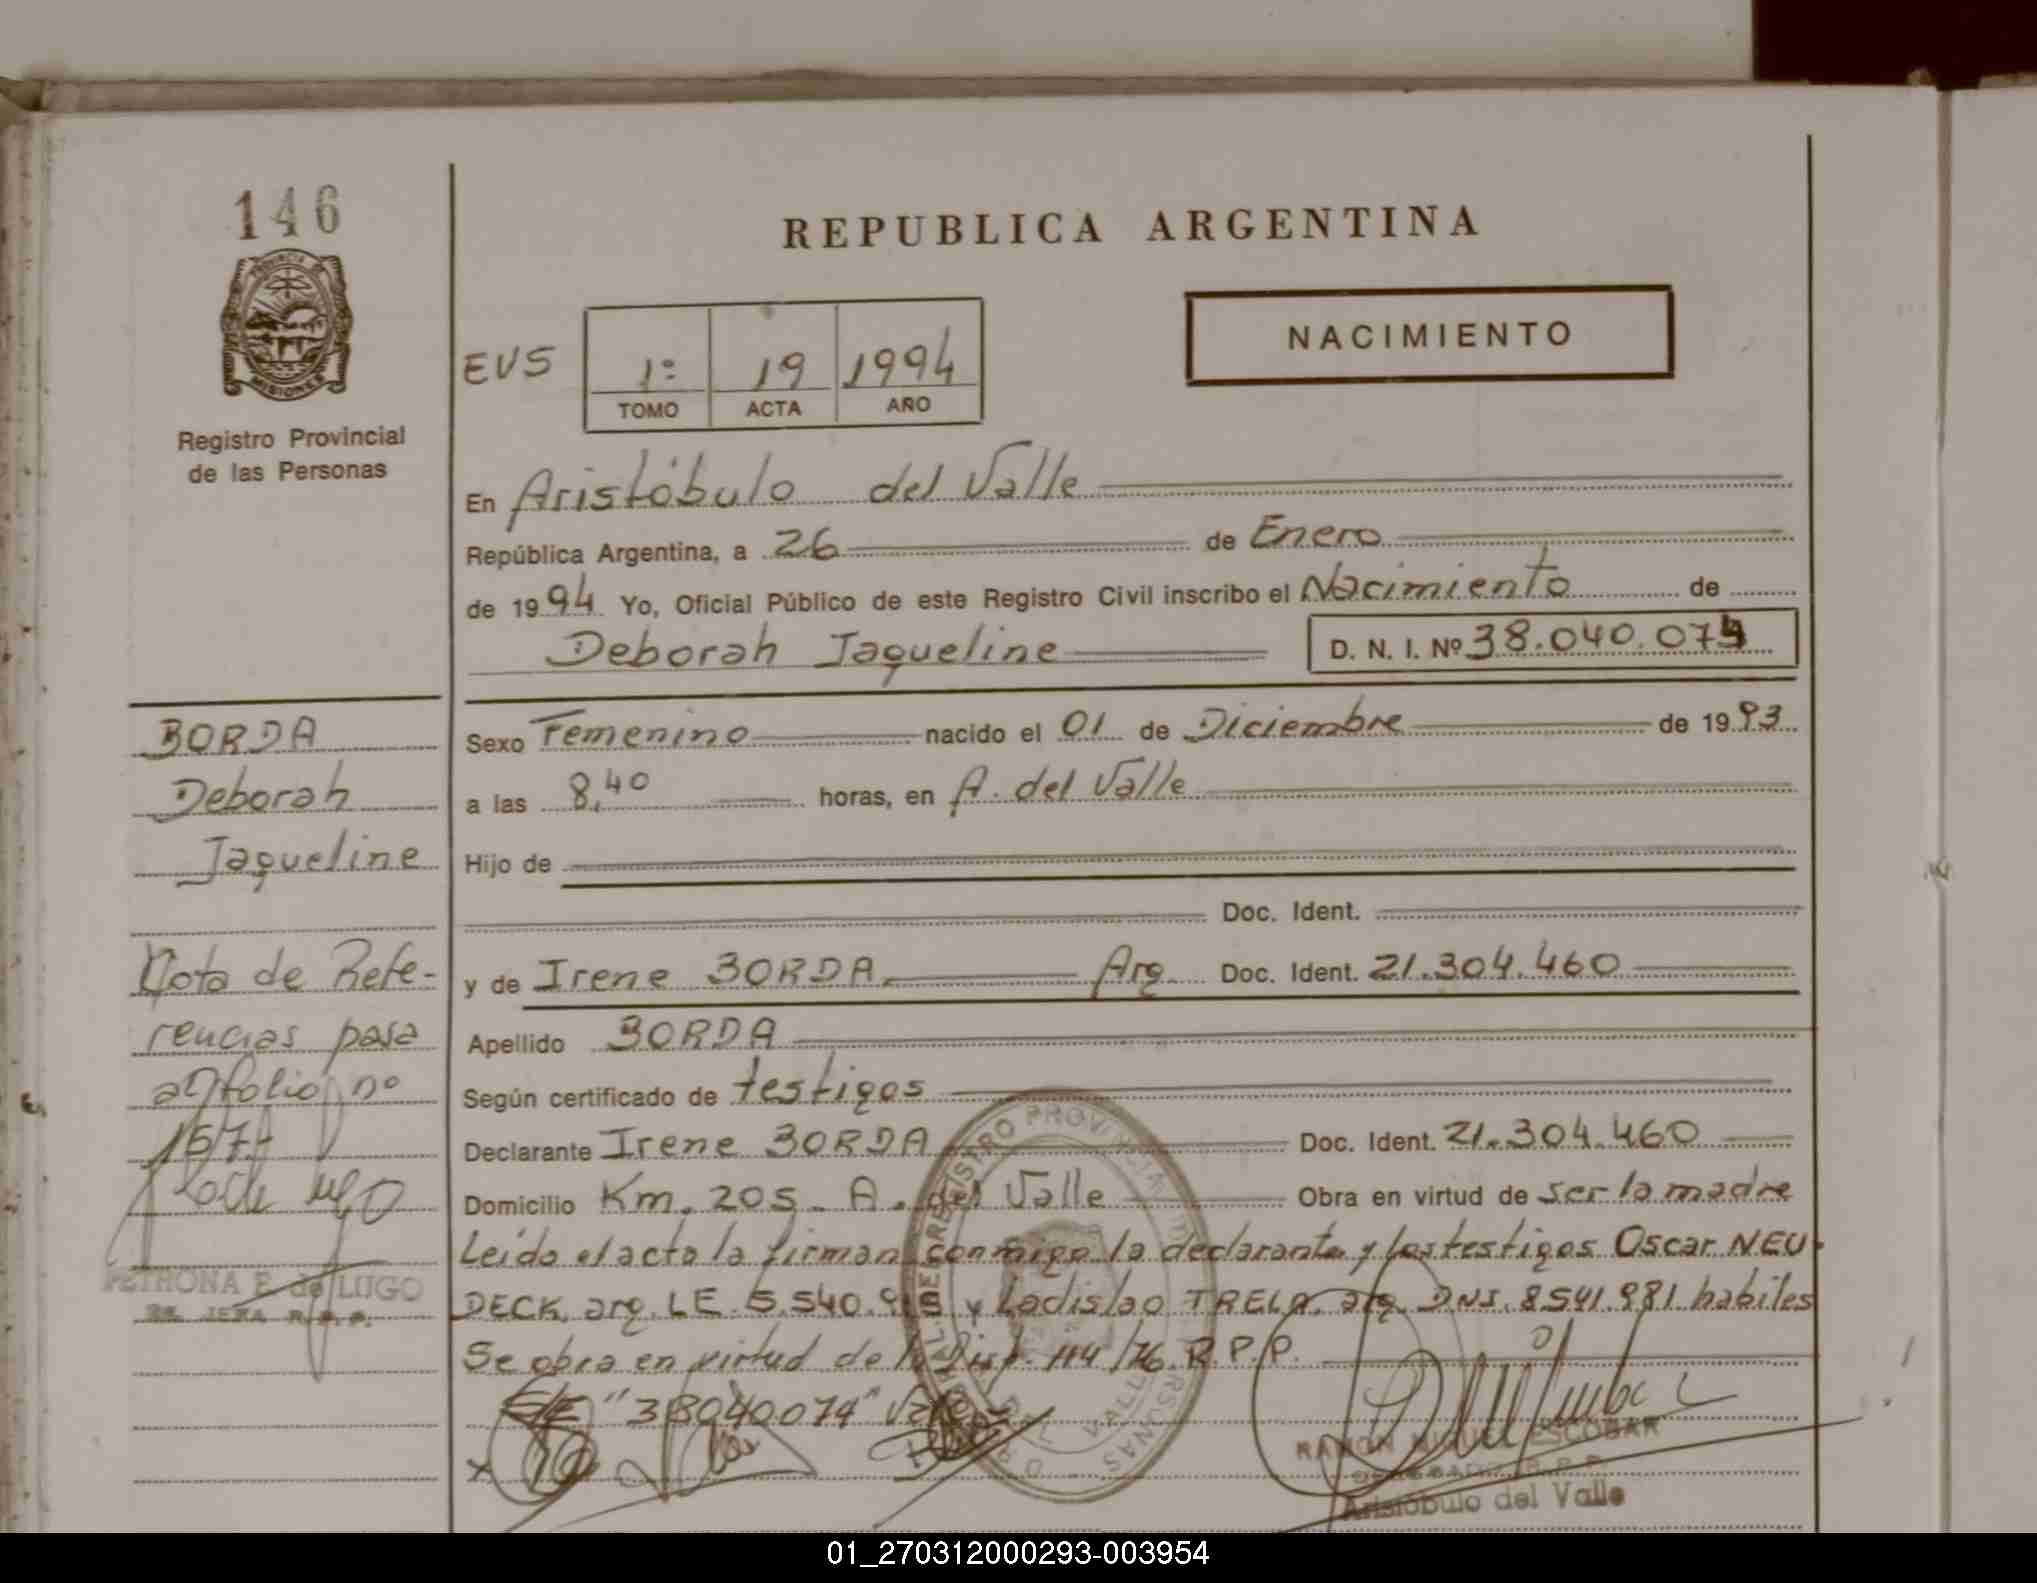 146
REPUBLICA ARGENTINA
PROVINCIA DE
MISIONES
Registro Provincial
de las Personas
NACIMIENTO
EVS
1º 19 1994
TOMO ACTA AÑO
En Aristóbulo del Valle
República Argentina, a 26 de Enero
de 1994 Yo, Oficial Público de este Registro Civil inscribo el Nacimiento de
Deborah Jaqueline D. N. I. Nº 38.040.074
BORDA
Deborah
Jaqueline
Sexo Femenino nacido el 01 de Diciembre de 1993
a las 8,40 horas, en A. del Valle
Hijo de
Doc. Ident.
y de Irene BORDA Arg. Doc. Ident. 21.304.460
Apellido BORDA
Según certificado de testigos
Declarante Irene BORDA Doc. Ident. 21.304.460
Domicilio Km. 205 - A. del Valle Obra en virtud de ser la madre
Leída el acta la firman conmigo la declarante y los testigos Oscar NEU-
DECK, arg. LE. 5.540. y Ladislao TRELA, arg. DNI. 8541.981 habiles
Se obra en virtud de la Disp. 114/76 R.P.P.
S/E "38040074" Vale
Nota de Refe-
rencias pasa
al folio nº
157-
PETRONA E. de LUGO
JEFA R.P.P.
REGISTRO PROVINCIAL DE LAS PERSONAS
RAMON MIGUEL ESCOBAR
Aristóbulo del Valle
01_270312000293-003954